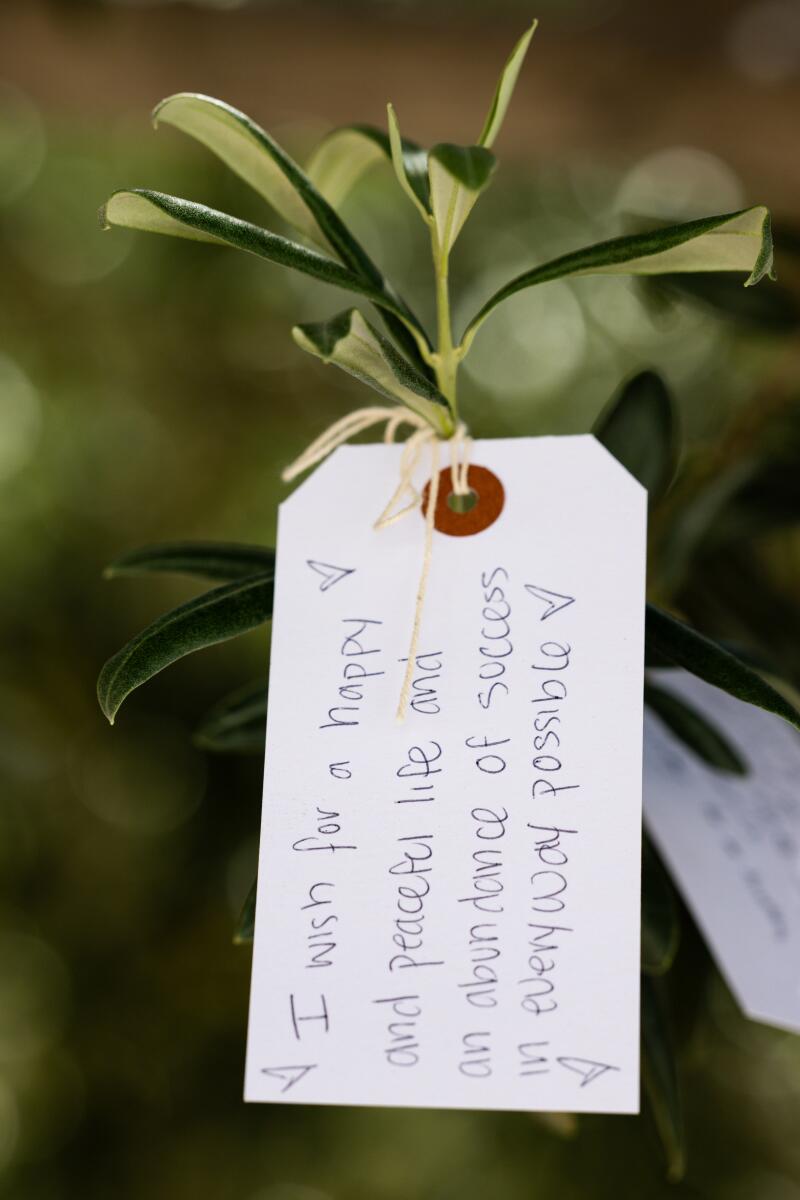 I wish for a happy
and peaceful life and
an abundance of success
in every way possible